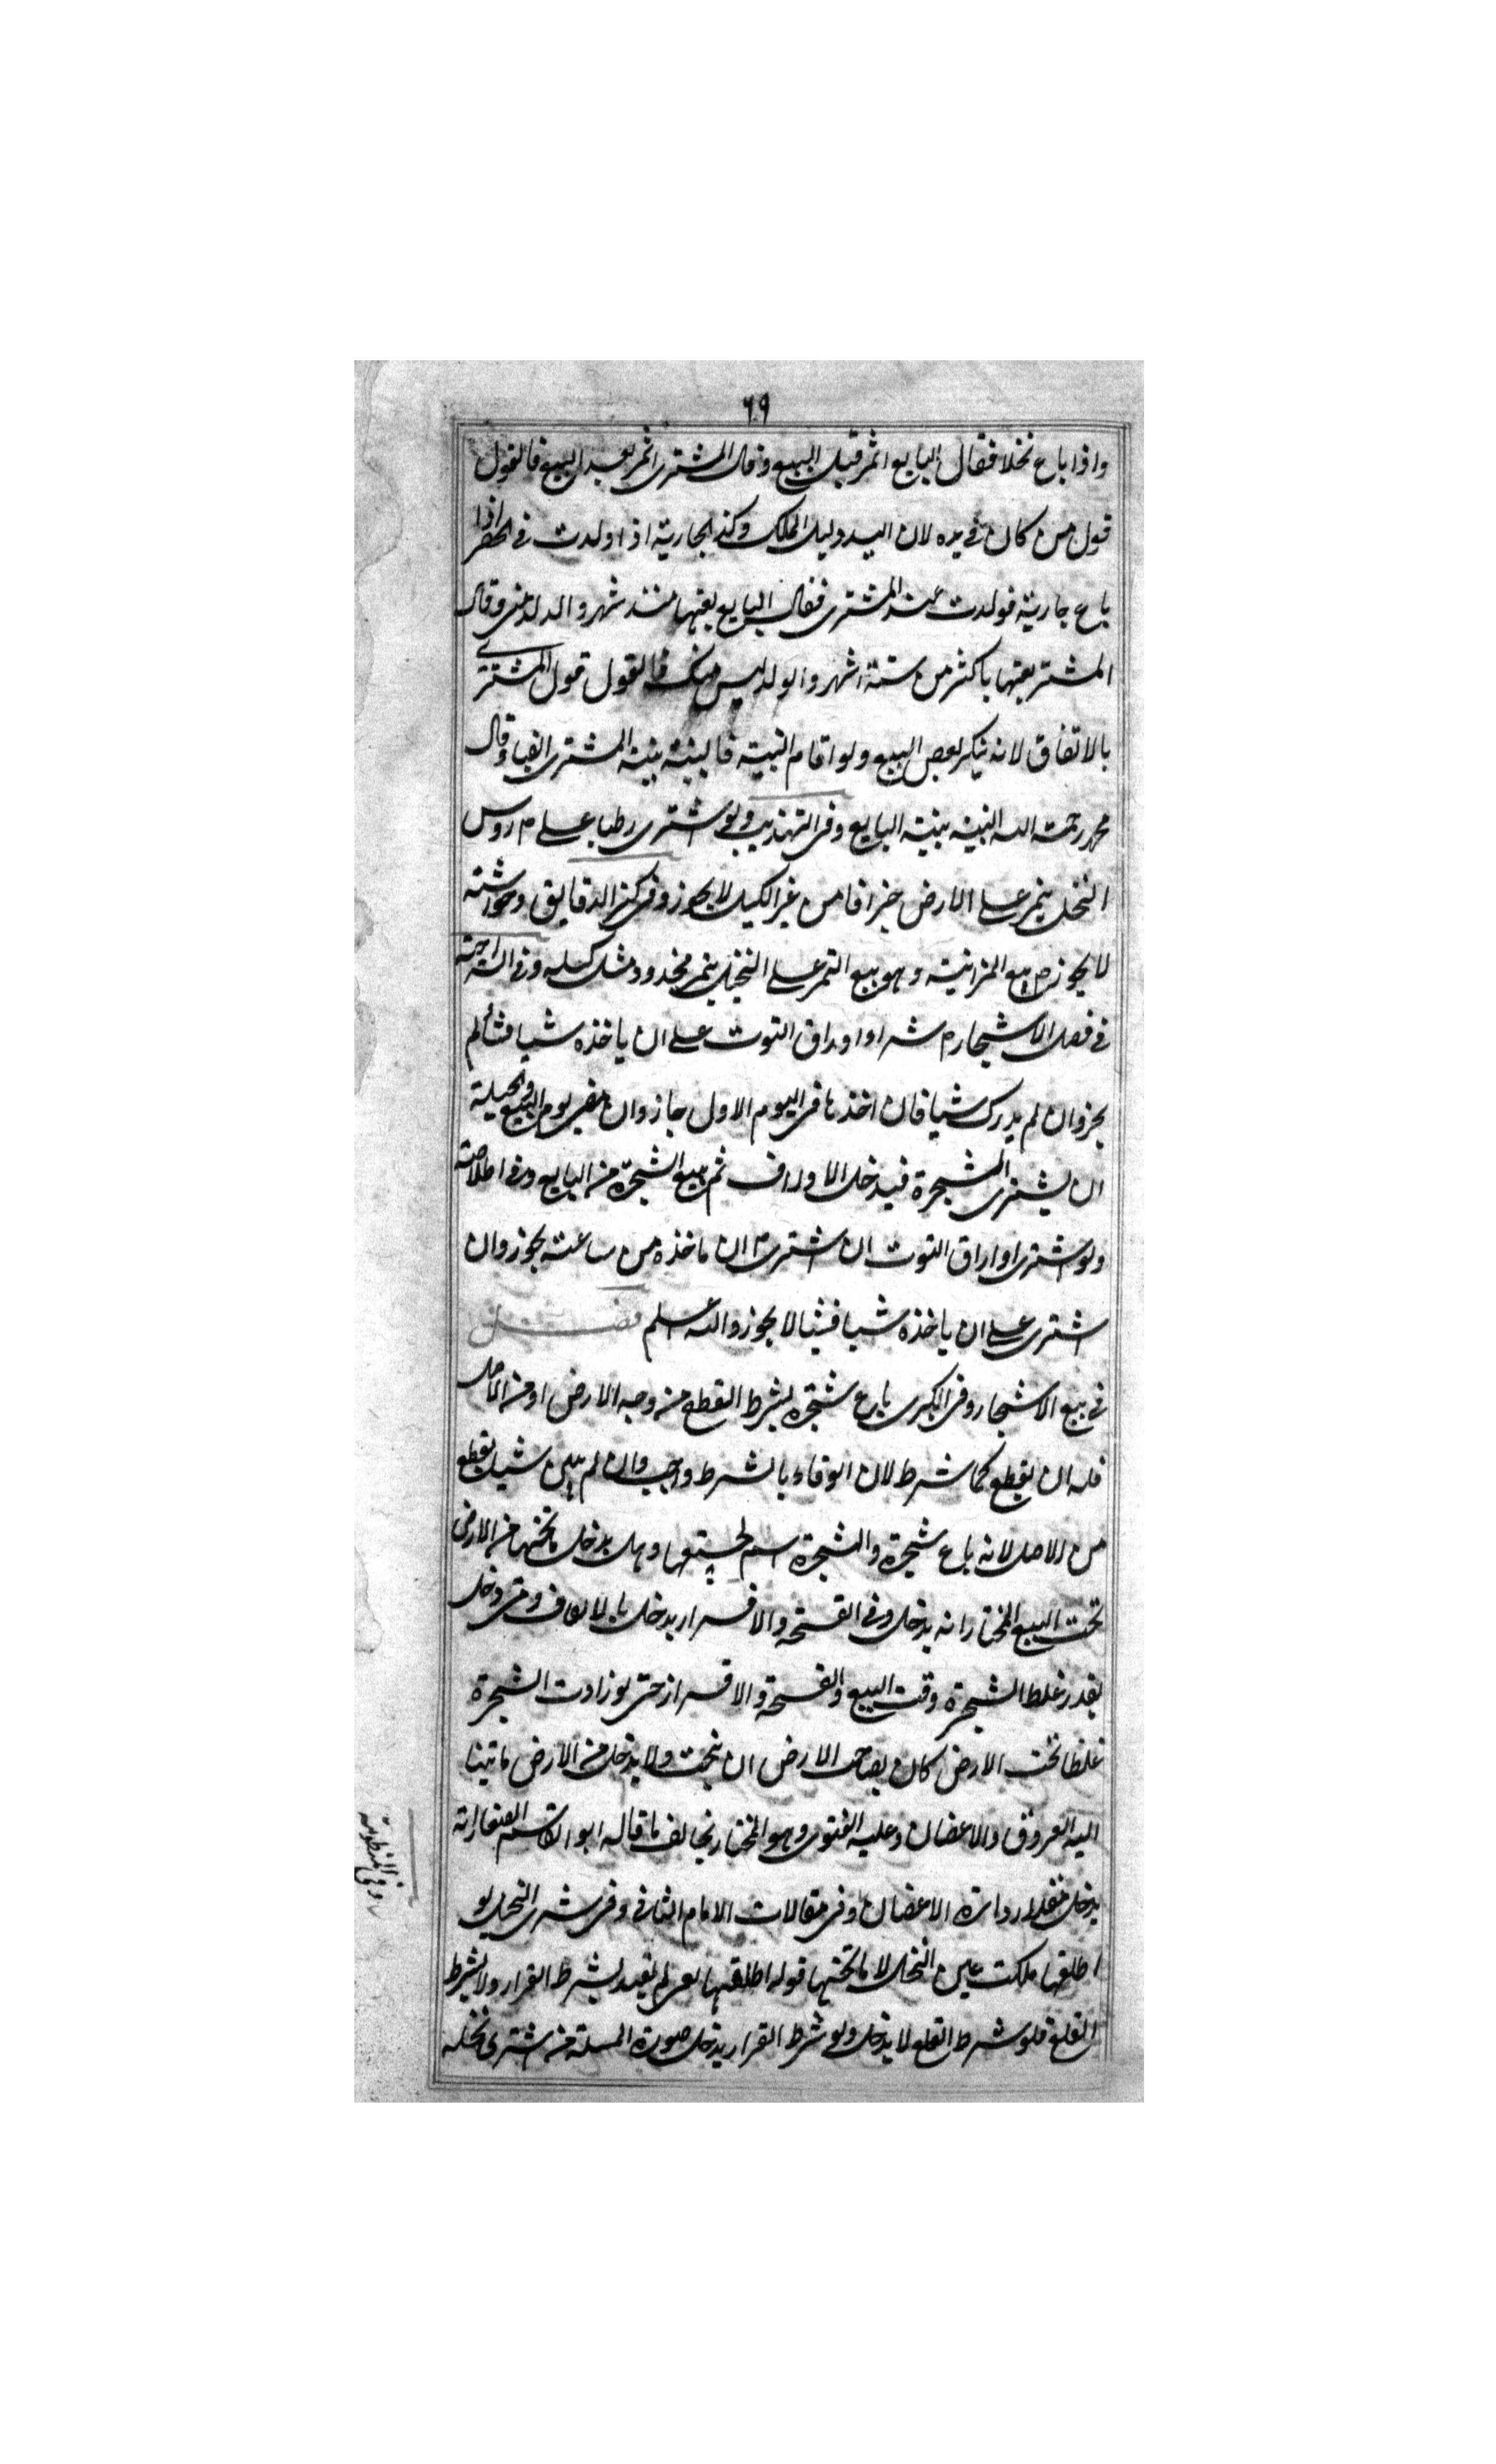 ٦٩
واذا باع نخلا فقال البايع اثمر قبل البيع وقال المشترى اثمر بعد البيع فالقول
قول من كان فى يده لان اليد دليل الملك وكذ الجارية اذا ولدت فى اذا
باع جارية فولدت عند المشترى فقال البايع بعتها منذ شهر والولد منى وقال
المشترى بعتها باكثر من ستة اشهر والولد ليس منك فالقول قول المشترى
بالاتفاق لانه ينكر البيع ولو اقام البينة فالبينة بينة المشترى ايضا وقال
محمد رحمة الله البينه بينة البايع وفى التهذيب ولو اشترى رطبا على روس
النخل بتمر على الارض جزافا من غير الكيل لا يجوز وفى كنز الدقايق وحواشته
لا يجوز بيع المزابنة وهو بيع التمر على النخيل بتمر مجذوذ مثل كيله وفى السراجية
فى فصل الاشجار شراو اوراق التوت على ان ياخذه شيا فشأ لم
يجز وان لم يدرك شيا فان اخذها فى اليوم الاول جاز وان مضى يوم البيع والحيلة
ان يشترى الشجرة فيدخل الاوراق ثم يبيع الشجرة من البايع وفى الخلاصة
ولو اشترى اوراق التوت ان اشترى ان ياخذه من ساعته يجوز وان
اشترى على ان ياخذه شيا فشيا لا يجوز والله اعلم فصل
فى بيع الاشجار وفى الكبرى باع شجرة بشرط القطع من وجه الارض او من الاصل
فله ان يقطع كما شرط لان الوفاء بالشرط واجب وان لم يبين شيا يقطع
من الاصل لانه باع شجرة والشجرة اسم لجميعها وهل يدخل ما تحتها من الارض
تحت البيع المختار انه يدخل وفى القسمة والاقرار يدخل بالاتفاق ومتى دخل
بقدر غلظ الشجرة وقت البيع والقسمة والاقرار حتى لو زادت الشجرة
غلظا تحت الارض كان لصاحب الارض ان ينحت ولا يدخل من الارض ما تينا
اليه العروق والاغصان وعليه الفتوى وهو المختار بخالف ما قاله ابو القاسم الصفار انه
يدخل مقدار دايرة الاغصان وفى مقالات الامام الثانى وفى شرى النخيل لو
اطلقها ملكت عين النخل لا ما تحتها قوله اطلقها يعنى لم يقيد بشرط القرار ولا بشرط
القلع فلو شرط القلع لا يدخل ولو شرط القرار يدخل صورة المسئلة من اشترى نخله
وفى المنظومة